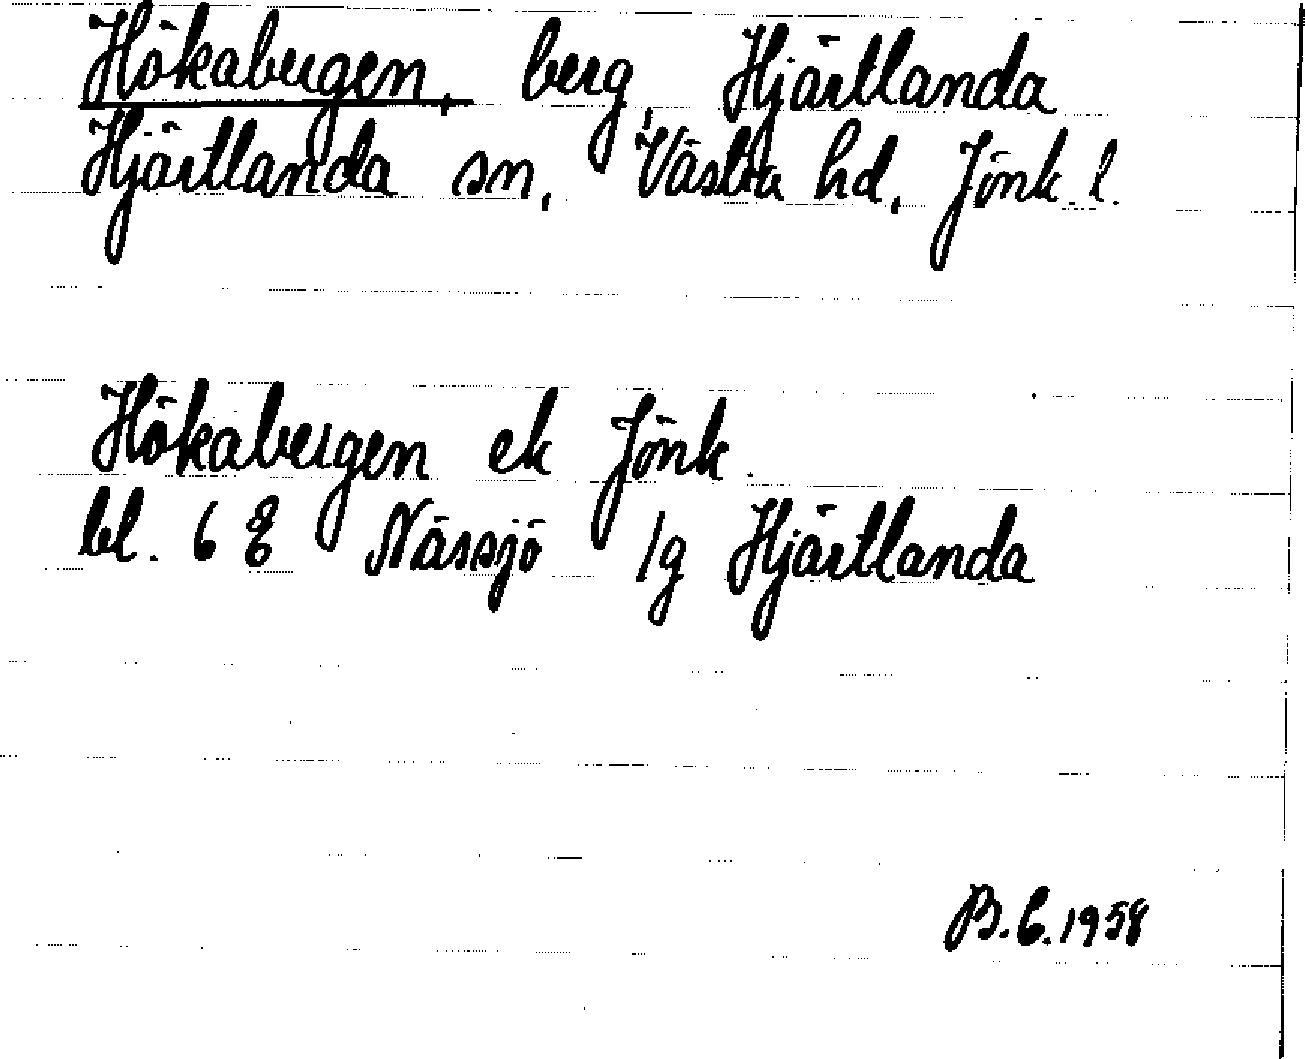 Hökabergen, berg, Hjärtlanda
Hjärtlanda sn, Västra hd, Jönk. l.
Hökabergen ek Jönk.
bl. 6 E Nässjö 1g Hjärtlanda
B.C. 1958